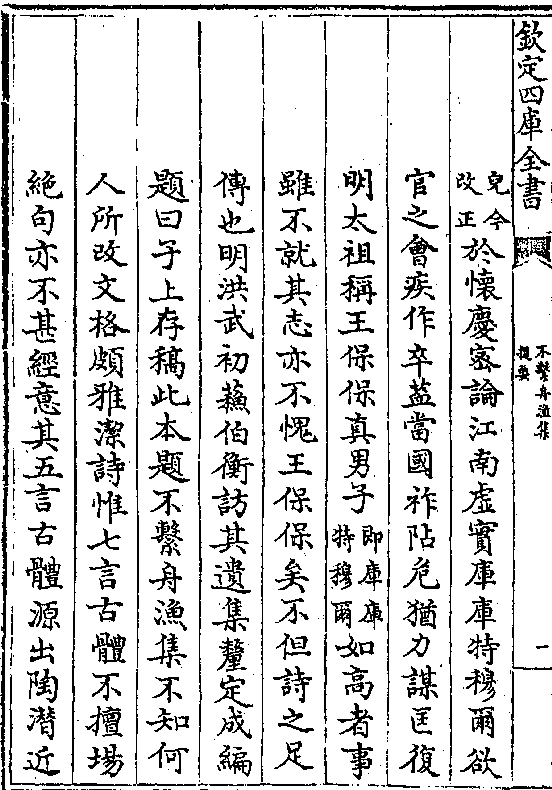 欽定四庫全書
不繫舟漁集
提要
一
兒今
改正
於懷慶密論江南虛實庫庫特穆爾欲
官之會疾作卒葢當國祚阽危猶力謀匡復
明太祖稱王保保真男子
即庫庫
特穆爾
如高者事
雖不就其志亦不愧王保保矣不但詩之足
傳也明洪武初蘓伯衡訪其遺集釐定成編
題曰子上存稿此本題不繫舟漁集不知何
人所改文格頗雅潔詩惟七言古體不擅場
絕句亦不甚經意其五言古體源出陶潛近